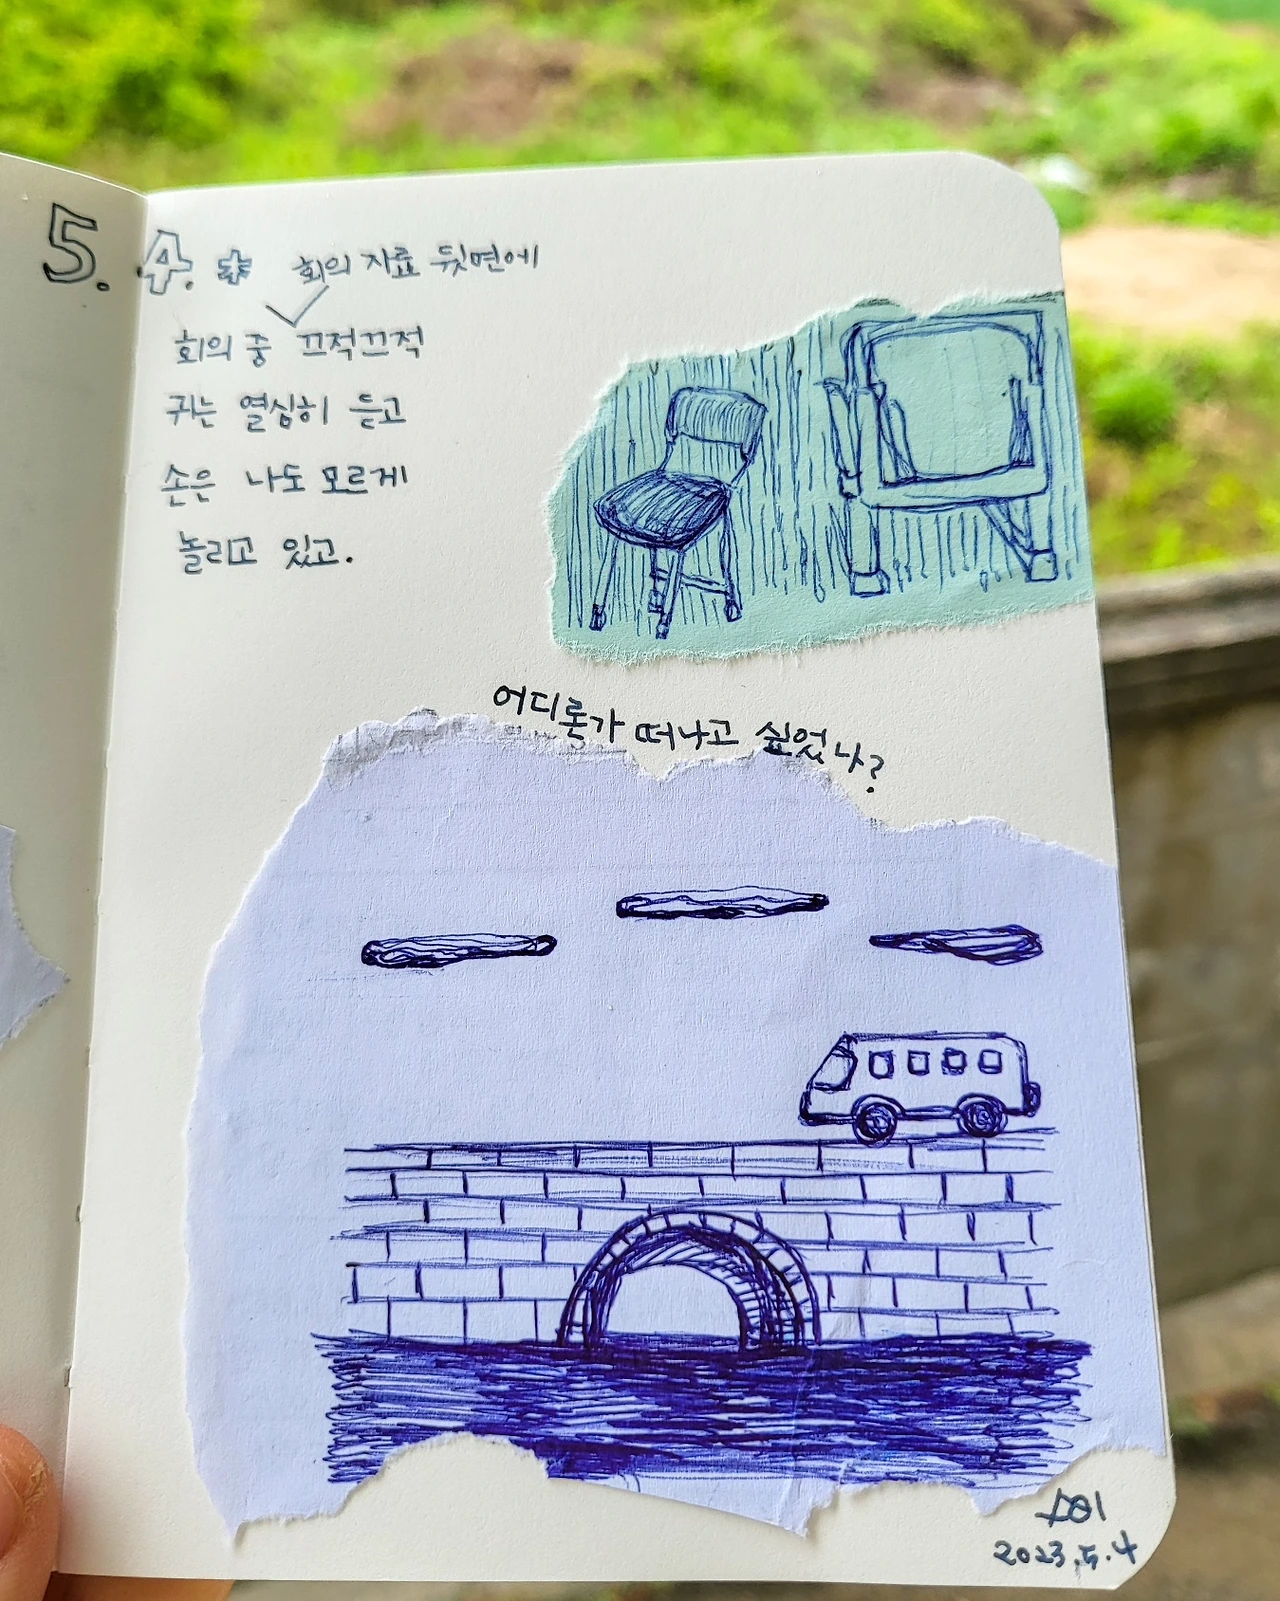 5. 4. * 회의 자료 뒷면에
회의 중 ✓ 끄적끄적
귀는 열심히 듣고
손은 나도 모르게
놀리고 있고.
어디론가 떠나고 싶었나?
2023. 5. 4